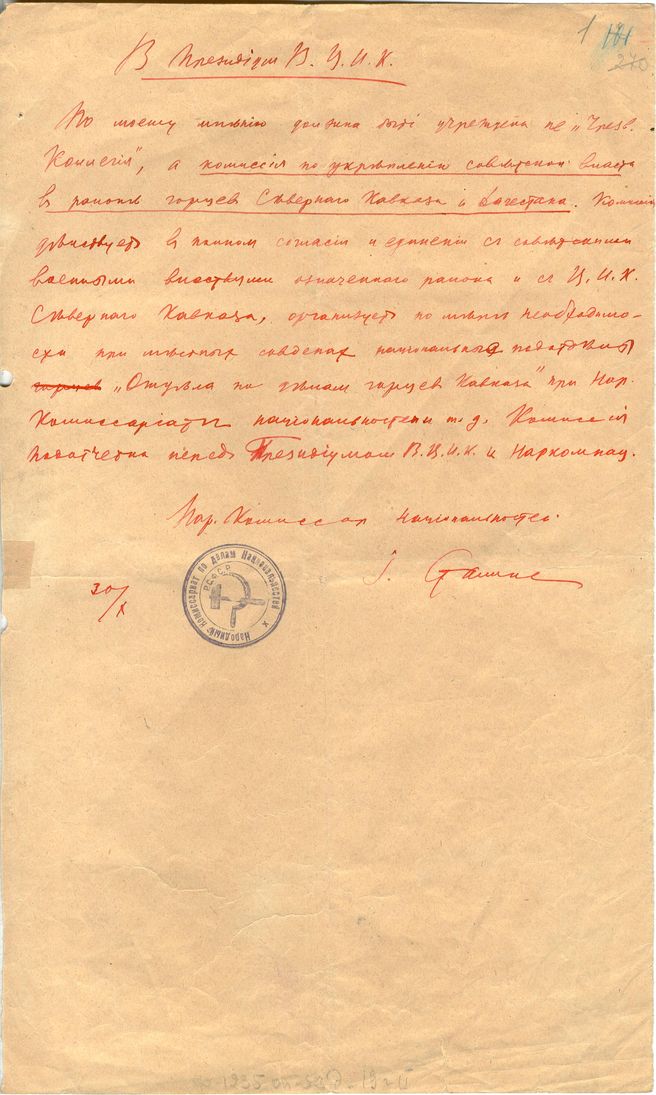 1 181
270
В Президіум В. Ц. И. К.
По моему мнѣнію должна быть учреждена не „Чрезв.
Коллегія", а комиссія по укрѣпленію совѣтской власти
въ районѣ горцев Сѣвернаго Кавказа и Дагестана. Комиссія
дѣйствует в полном согласіи и единеніи съ совѣтскими
военными властями означенного района и съ Ц. И. К.
Сѣвернаго Кавказа, организует по мѣрѣ необходимо-
сти при мѣстных совдепах національные подотдѣлы
горцев „Отдѣла по дѣлам горцев Кавказа" при Нар.
Комиссаріатѣ національностей и т. д. Комиссія
подотчетна перед Президіумом В.Ц.И.К. и Наркомнац.
Нар. Комиссар національностей
І. Сталин
30/X
Народный Комиссариат по делам Национальностей
Р.С.Ф.С.Р.